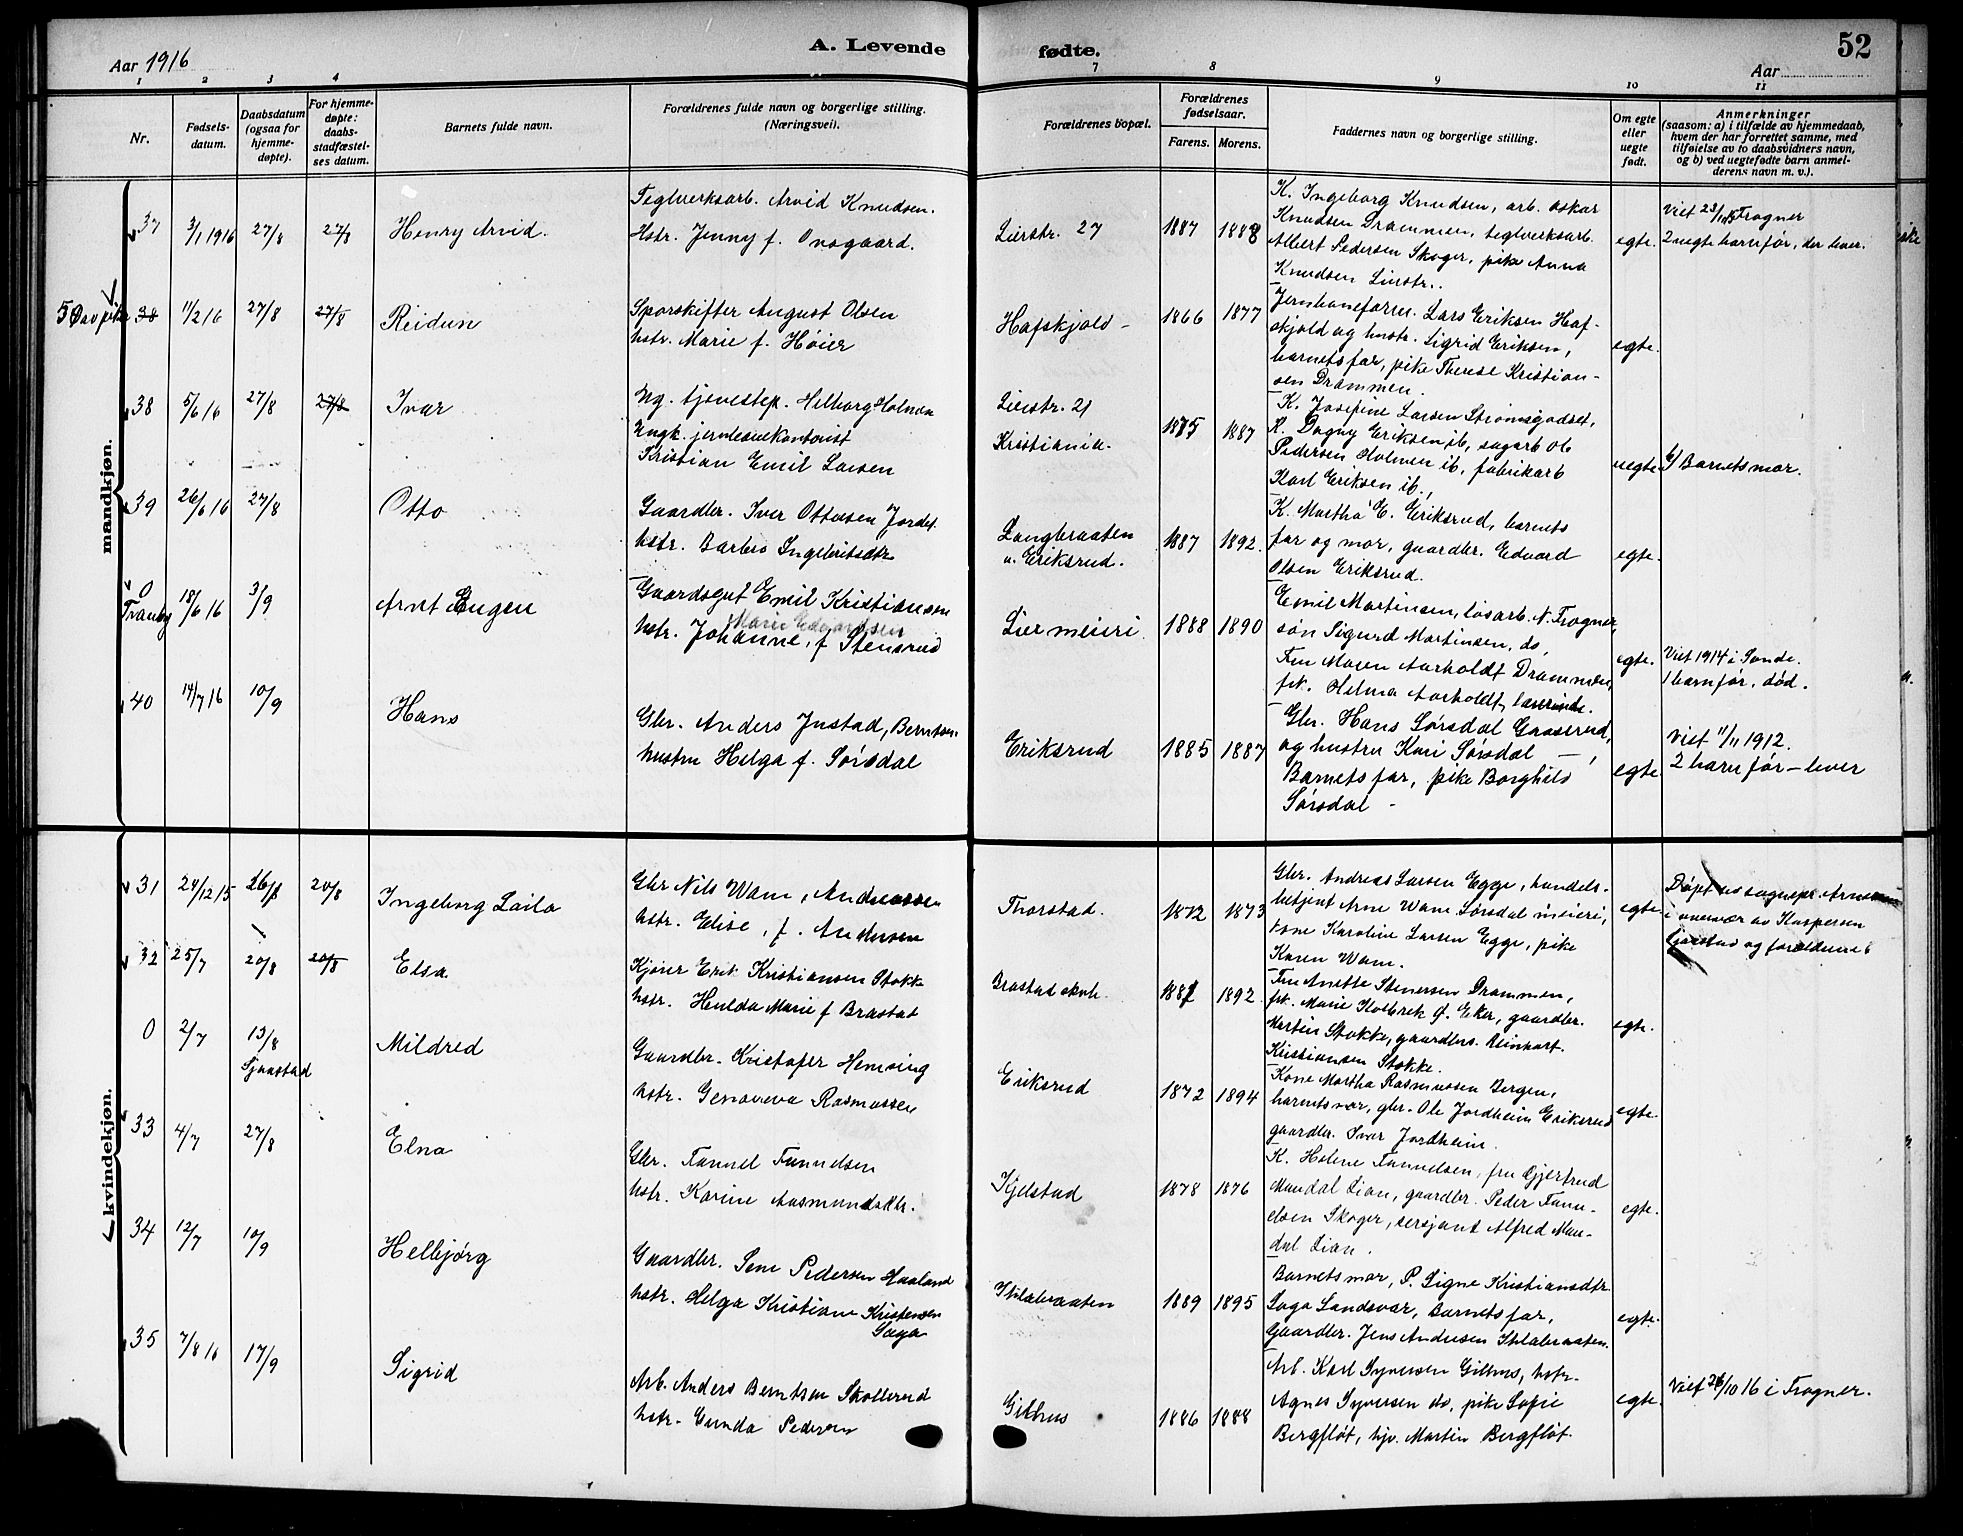 Aar 1916
A. Levende
fødte.
52
Aar
1 2 3 4
7 8 9 10 11
Nr.
Fødsels-
datum.
Daabsdatum
(ogsaa for
hjemme-
døpte).
For hjemme-
døpte:
daabs-
stadfæstel-
ses datum.
Barnets fulde navn.
Forældrenes fulde navn og borgerlige stilling.
(Næringsvei).
Forældrenes bopæl.
Forældrenes
fødselsaar.
Farens. Morens.
Faddernes navn og borgerlige stilling.
Om egte
eller
uegte
født.
Anmerkninger
(saasom: a) i tilfælde av hjemmedaab,
hvem der har forrettet samme, med
tilføielse av to daabsvidners navn,
og b) ved uegtefødte barn anmel-
derens navn m. v.).
mandkjøn.
37 3/1 1916 27/8 27/8 Henry Arvid.
Teglverksarb. Arvid Knudsen.
Hstr. Jenny f.
Lierstr. 27 1887 1888
K. Ingeborg Knudsen, arb. Oskar
Knudsen Drammen, teglverksarb.
Albert Pedersen Skoger, pike Anna
Knudsen Lierstr..
egte.
Viet 23/1 15 Frogner
2 uegte barn før, der lever.
38 11/2 16 27/8 27/8 Reidun
Sporskifter August Olsen
hstr. Marie f. Høier
Hafskjold - 1866 1877
Jernbaneform. Lars Eriksen Haf-
skjold og hustr. Sigrid Eriksen,
barnets far, pike Therese Kristian-
sen Drammen.
egte.
38 5/6 16 27/8 27/8 Ivar
Ug. tjenestep. Helborg Holmen
Ungk. kontorist
Kristian Emil Larsen
Lierstr. 21
Kristiania. 1875 1887
K. Josefine Larsen Strømsgodset,
K. Dagny Eriksen ib, sagarb Ol
Pedersen Holmen ib, fabrikarb
Karl Eriksen ib.
uegte
Barnets mor.
39 26/6 16 27/8 Otto
Gaardbr. Iver Ottosen Jordet
hstr. Barbro Ingebritsdtr
Langbraaten
u. Eriksrud. 1887 1892.
K. Martha E. Eriksrud, barnets
far og mor, gaardbr. Edvard
Olsen Eriksrud.
egte.
0
Tranby 18/6 16 3/9 Arnt Eugen
Gaardsgut Emil Kristiansen
Marie Edvardsen
hstr. Johanne, f Stensrud
Lier meieri 1888 1890
Emil Martinsen, løsarb. N. Frogner,
søn Sigurd Martinsen, do,
Fru Maren Aarholdt Drammen,
frk. Helma Aarholdt, lærerinde.
egte.
Viet 1914 i Sande.
1 barn før, død.
40 14/7 16 10/9 Hans
Gbr. Anders Justad, Berntsen
hustru Helga f. Sørsdal
Eriksrud 1885 1887
Gbr. Hans Sørsdal Gaaserud,
og hustru Kari Sørsdal —,
Barnets far, pike Borghild
Sørsdal -
egte
Viet 11/11 1912.
2 barn før - lever
kvindekjøn.
31 24/12 15 26/3 20/8 Ingeborg Laila
Gbr Nils Wam, Andreassen
hstr. Elise, f. Andersen
Thorstad. 1872 1873
Gbr. Andreas Larsen Egge, handels-
betjent Arne Wam Sørsdal meieri,
kone Karoline Larsen Egge, pike
Karen Wam.
egte
Døpt av sognepr.
i nærvær av Kaspersen
Gjaastad og forældrene
32 25/7 20/8 20/8 Elsa
Kjører Erik Kristiansen Stokke
hstr. Hulda Marie f Brastad
Brastad skole. 1887 1892.
Fru Anette Stenersen Drammen,
frk. Marie Kolbrek Ø. Eker, gaardbr.
Martin Stokke, gaardbrs. Reinhart
Kristiansen Stokke.
egte.
0 2/7 13/8 Mildred
Gjaastad
Gaardbr. Kristofer Hemsing
hstr. Genoveva Rasmussen
Eriksrud 1872 1894
Kone Martha Rasmussen Bergen,
barnets mor, gbr. Ole Jordheim Eriksrud
gaardbr. Iver Jordheim.
egte
33 4/7 27/8 Elna
Gbr. Fannel Fannelsen
hstr. Karine Aasmundsdtr.
Kjelstad 1878 1876
K. Helene Fannelsen, fru Gjertrud
Mandal Lian, gaardbr. Peder Fann-
elsen Skoger, sersjant Alfred Man-
dal Lian.
egte.
34 12/7 10/9 Helbjørg
Gaardbr. Jens Pedersen Haaland
hstr. Helga Kristiane Kristensen
Saga
1889 1895
Barnets mor, P. Signe Kristiansdtr
Saga Sandsvær, Barnets far,
Gaardbr. Jens Andersen
egte.
35 7/8 16 17/9 Sigrid
Arb. Anders Berntsen Skollerud
hstr. Gunda Pedersen
Gilhus 1886 1888
Arb. Karl Syversen Gilhus, hstr.
Agnes Syversen do, pike Sofie
Bergfløt, hjv. Martin Bergfløt.
egte.
Viet 28/10 16 i Frogner.